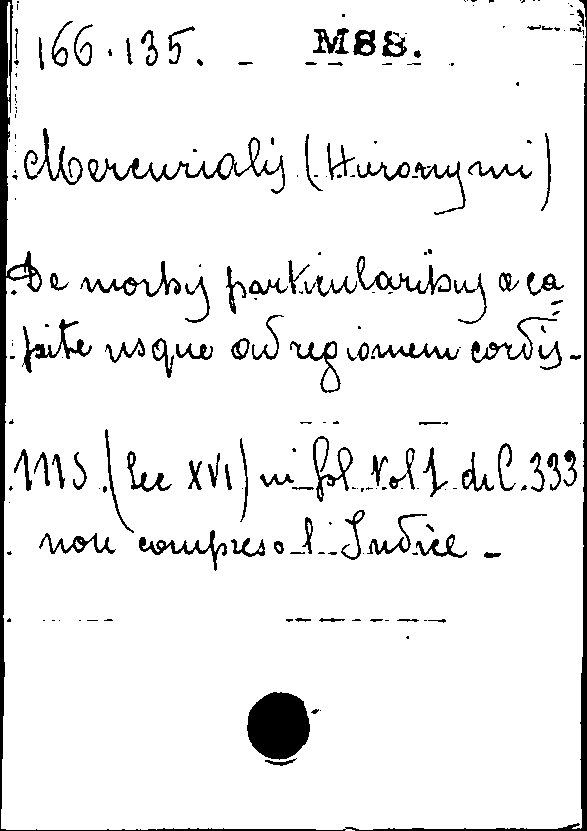 166.135. MSS.
Mercurialis (Hieronymi)
De morbis particularibus a ca
pite usque ad regionem cordis.
MS. (Sec XVI) in fol. Vol 1 di C. 333
non compreso l'Indice -